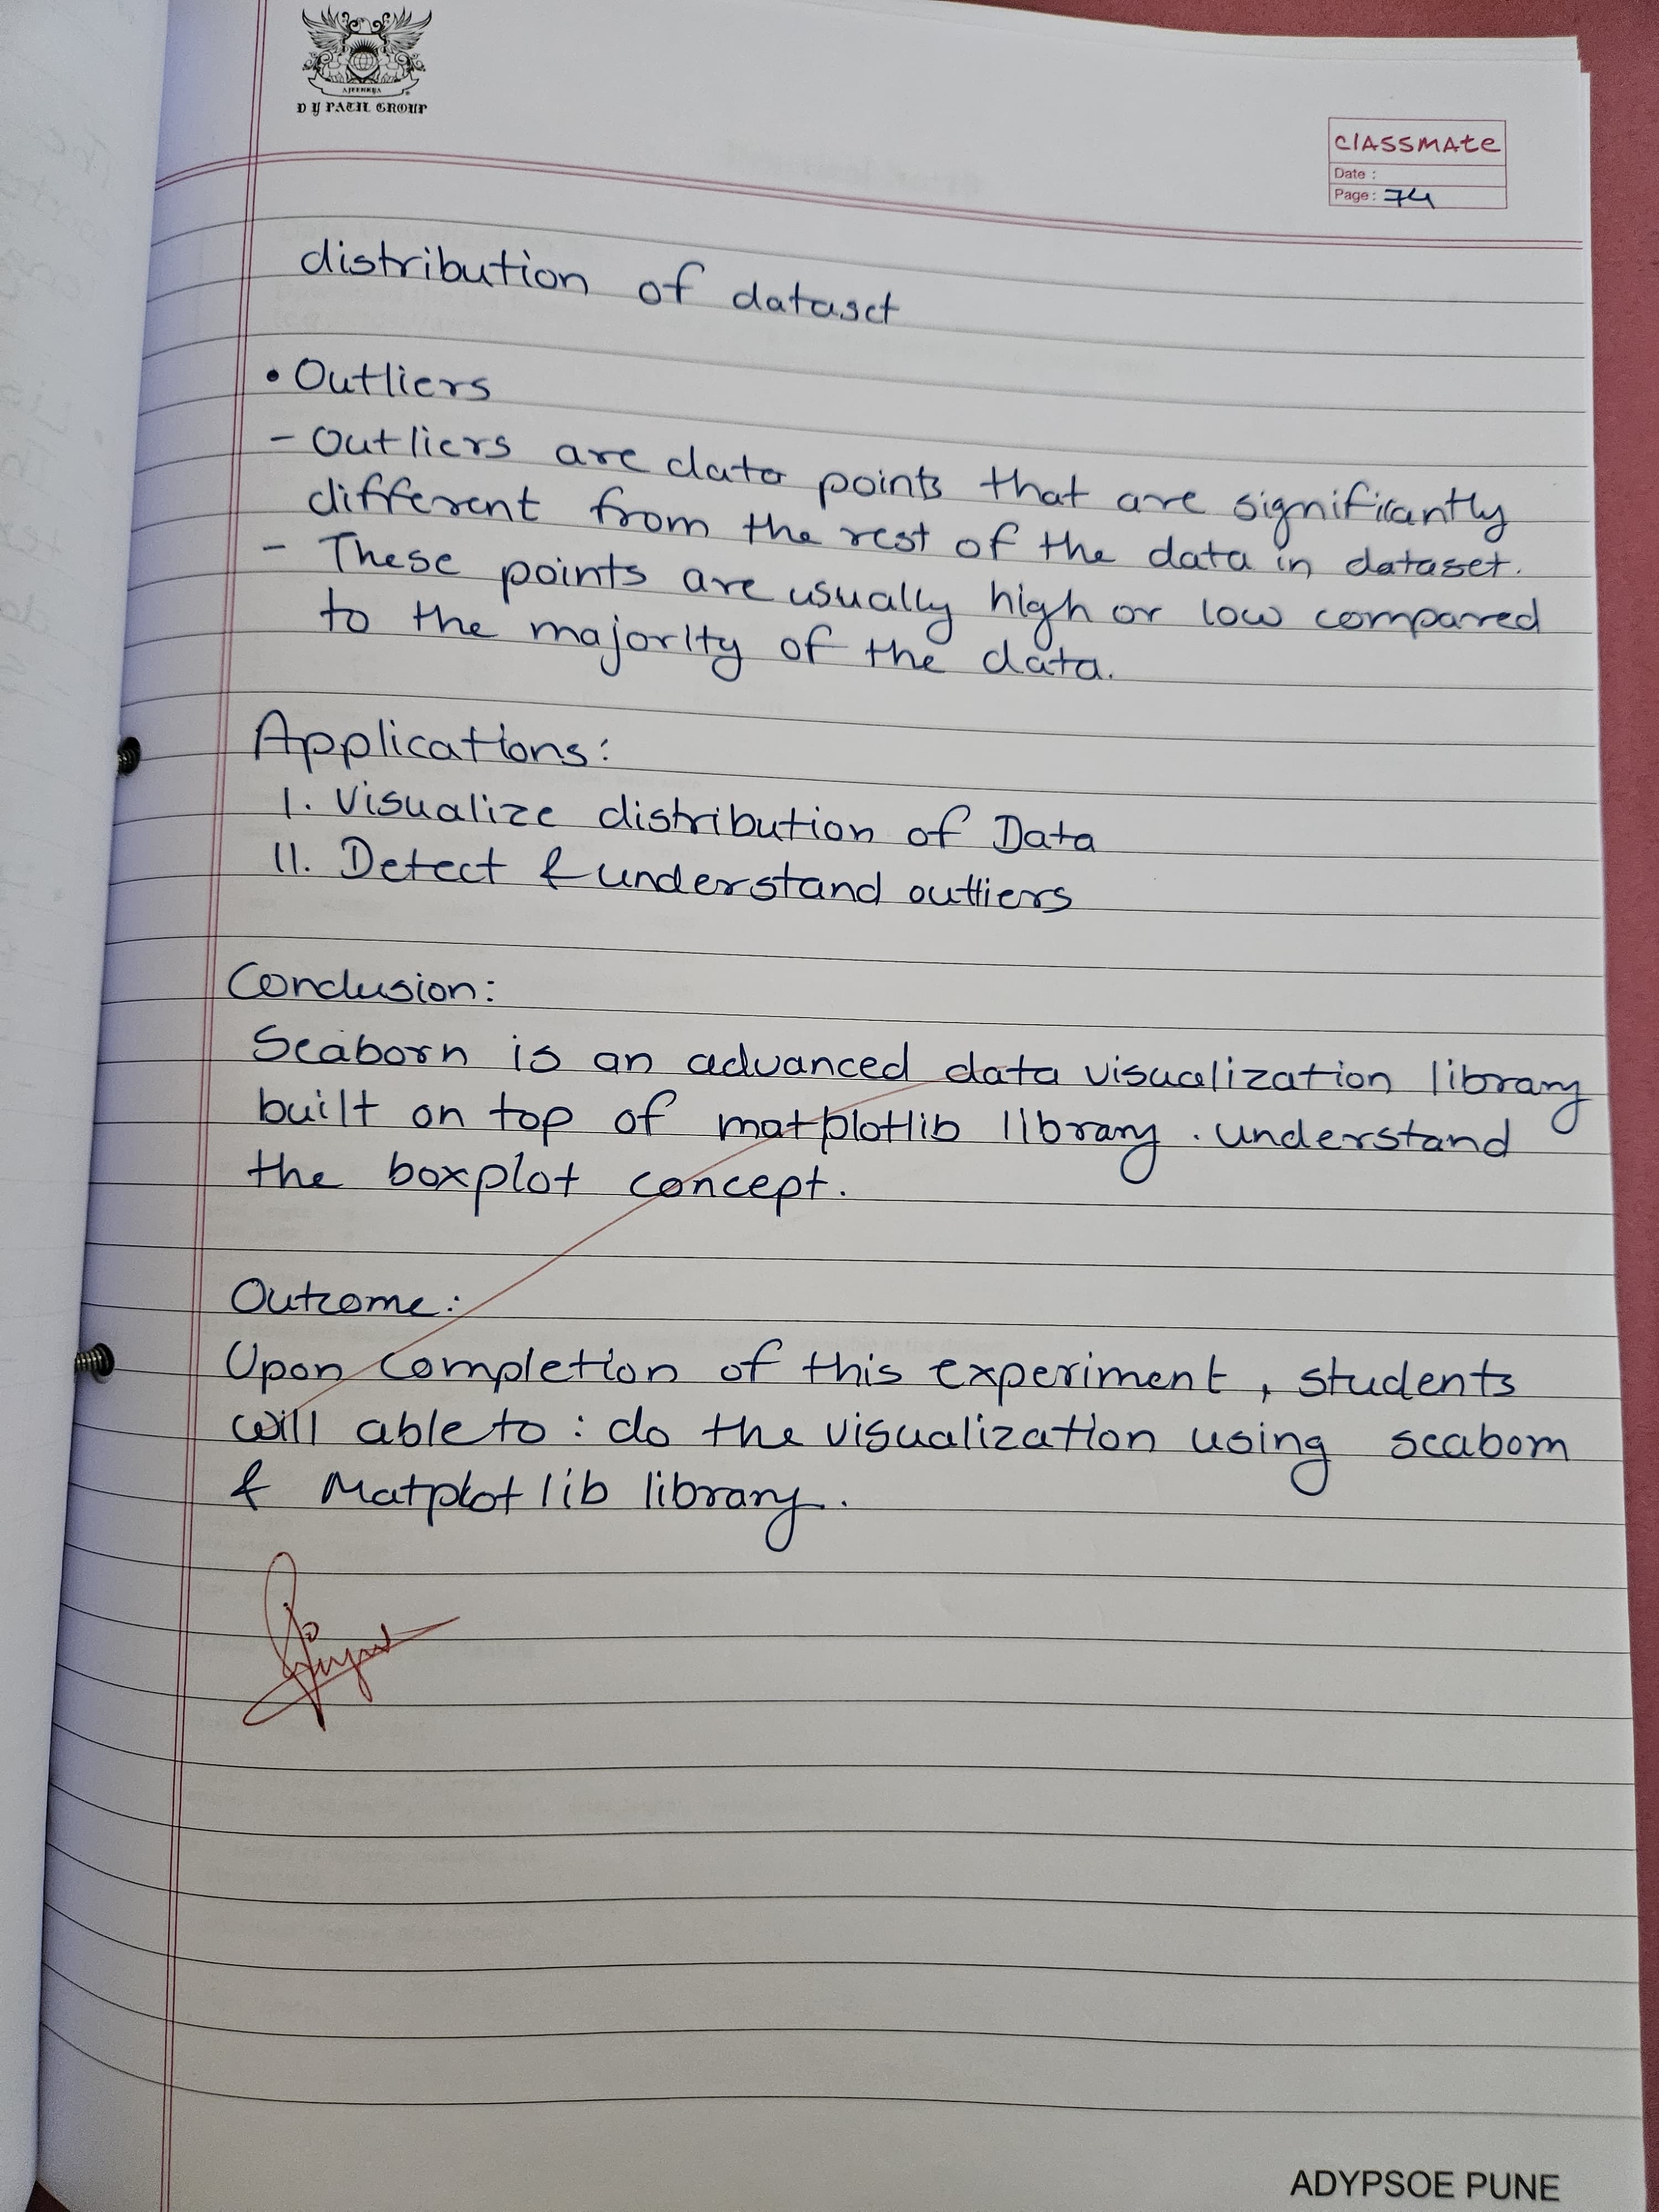 AJEENKYA
D Y PATIL GROUP
CLASSMATE
Date :
Page: 74
distribution of dataset
• Outliers
- Outliers are data points that are significantly
different from the rest of the data in dataset.
- These points are usually high or low compared
to the majority of the data.
Applications:
I. Visualize distribution of Data
II. Detect & understand outliers
Conclusion:
Seaborn is an advanced data visualization library
built on top of matplotlib library. understand
the boxplot concept.
Outcome:
Upon completion of this experiment, students
will able to : do the visualization using seaborn
& Matplotlib library.
ADYPSOE PUNE